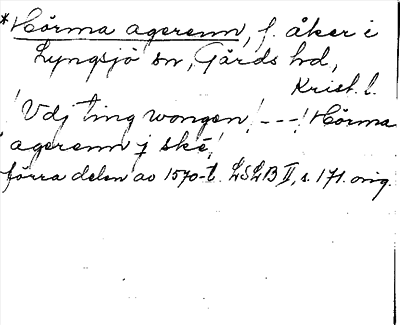 *Hörma agerenn, f. åker i
Lyngsjö sn, Gärds hd,
Krist. l.
"Vdj ting wongen /---/ Hörma
agerenn j ske"
förra delen av 1570-t. LSLB II, s. 171. orig.